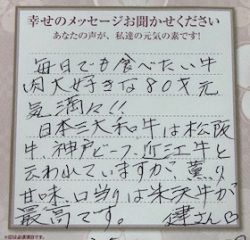 幸せのメッセージお聞かせください
あなたの声が、私達の元気の素です!
毎日でも食べたい牛
肉大好きな80才元
気満々!!
日本三大和牛は松阪
牛、神戸ビーフ、近江牛と
云われていますが、薫り
甘味、口当りは米沢牛が
最高です。 健さん♡